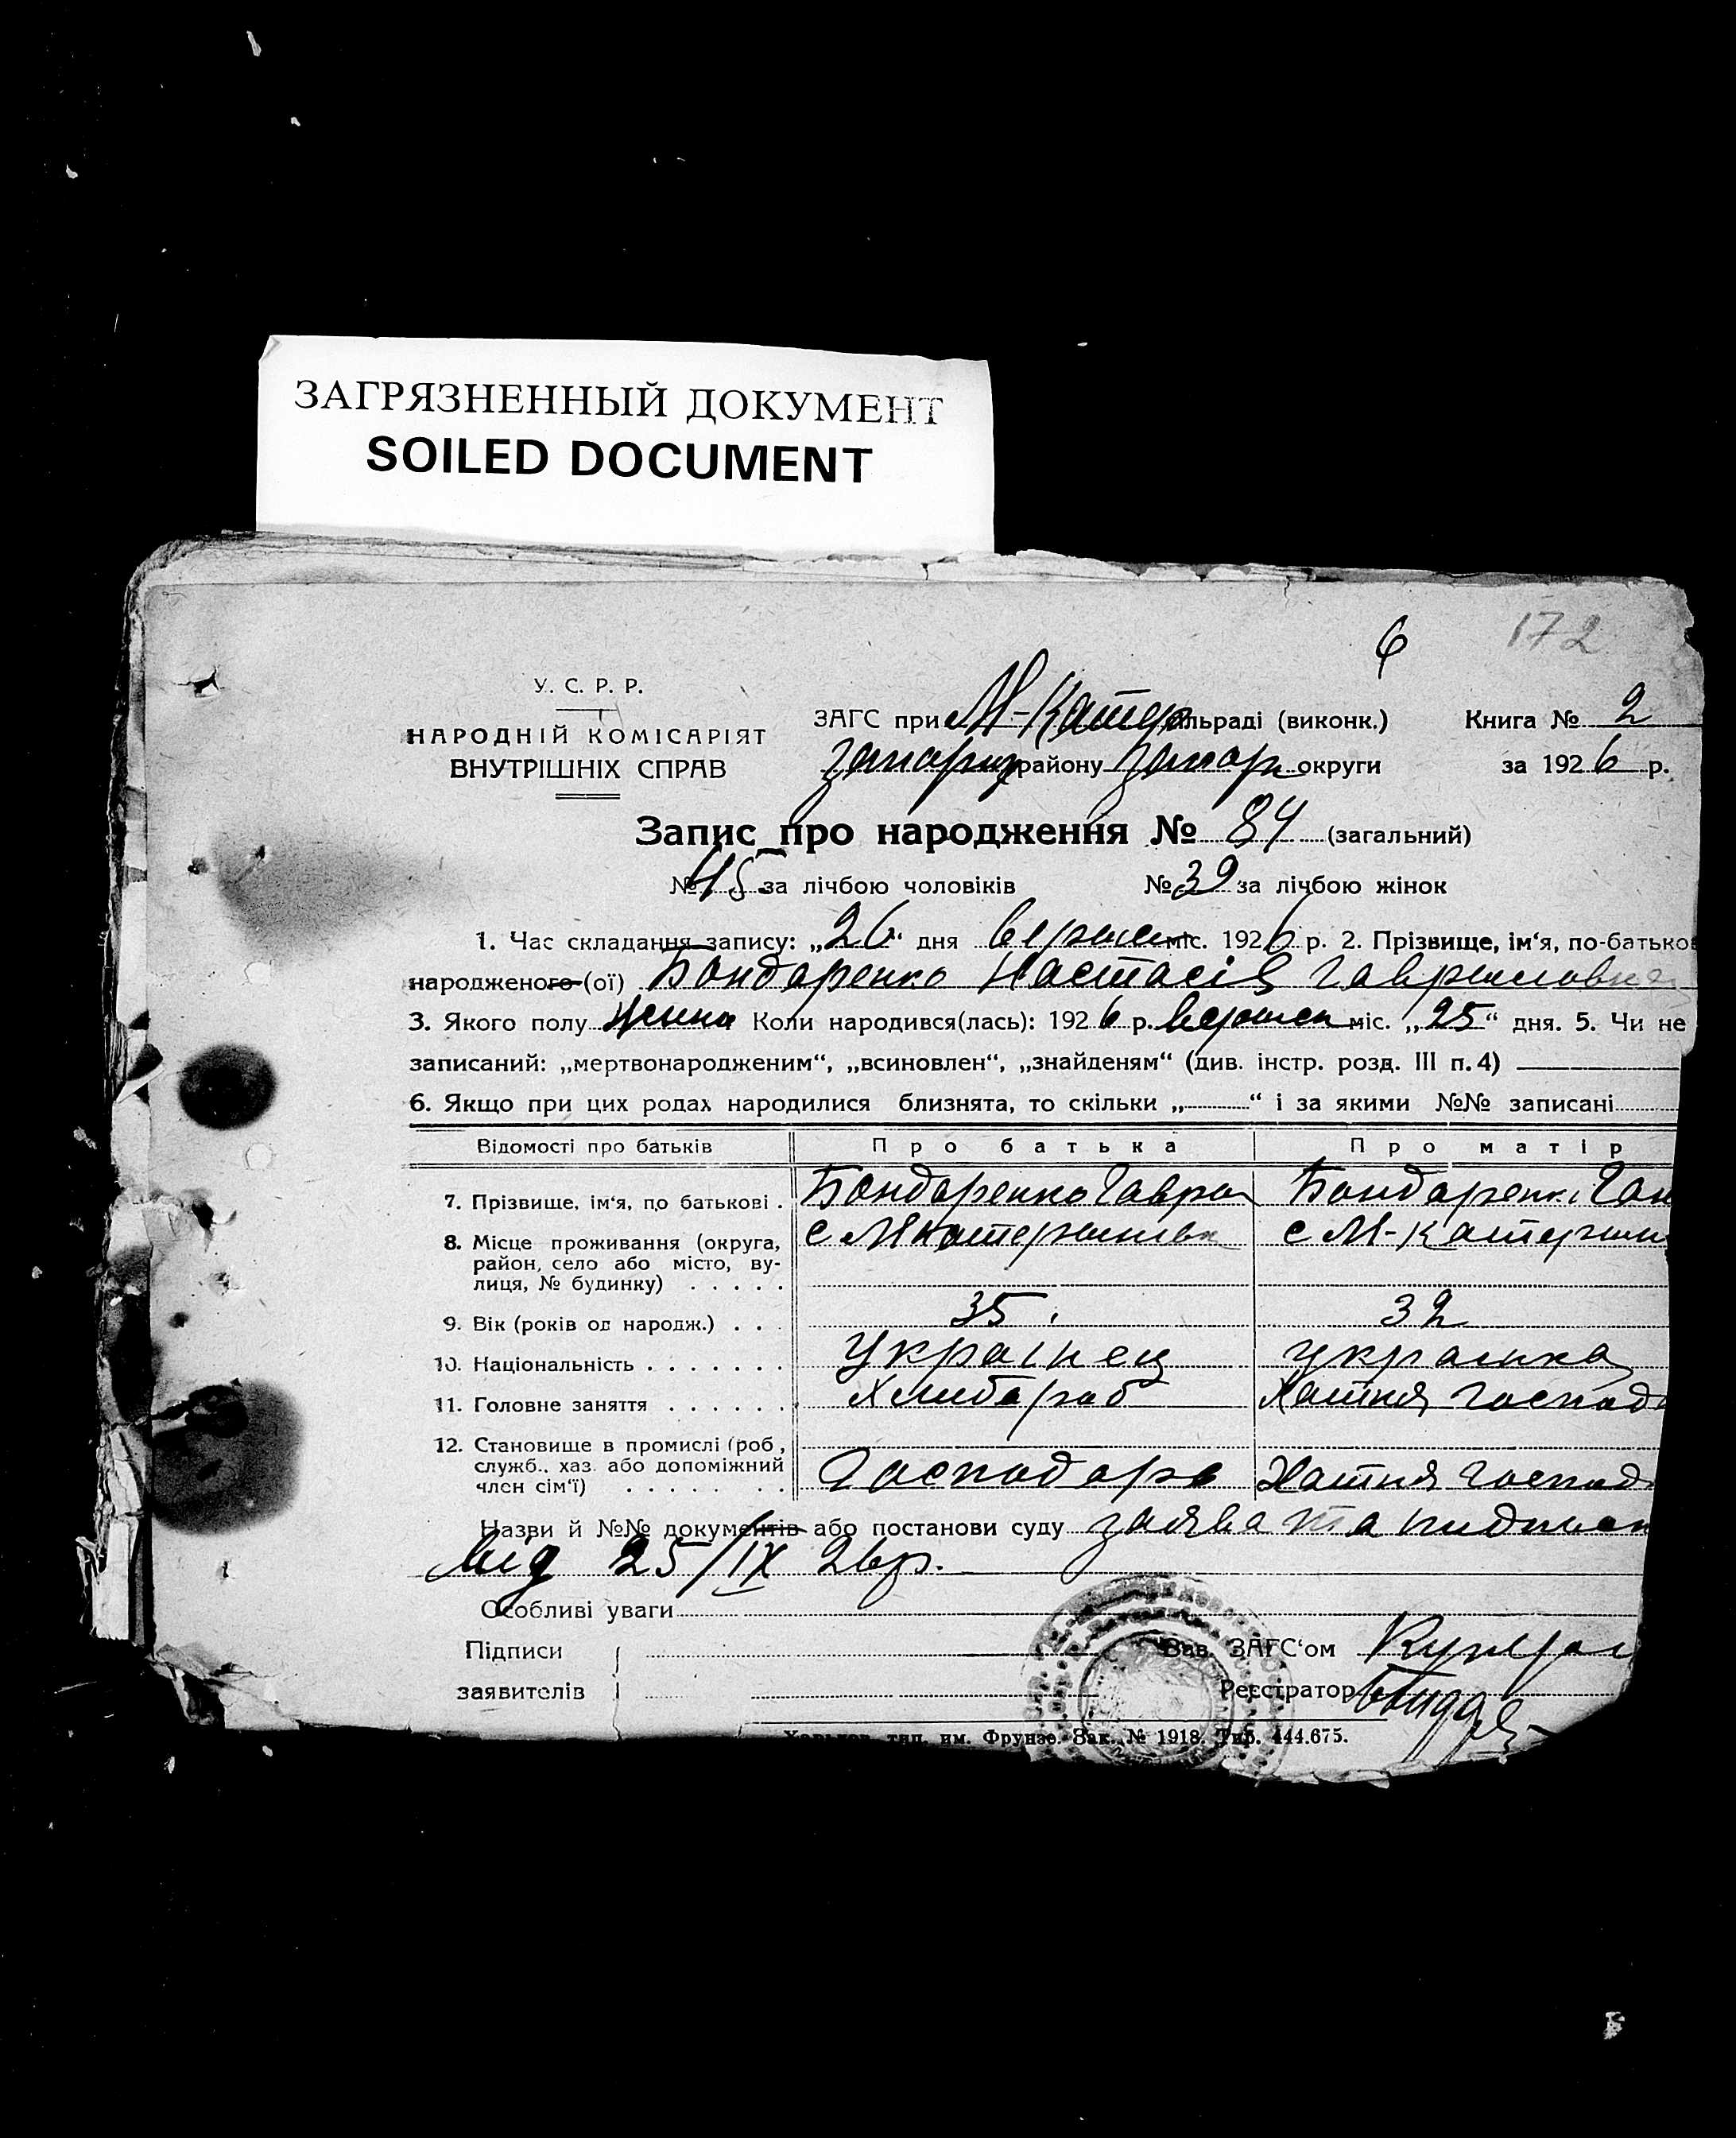 ЗАГРЯЗНЕННЫЙ ДОКУМЕНТ
SOILED DOCUMENT
6 172
У. С. Р. Р.
НАРОДНІЙ КОМІСАРІЯТ
ВНУТРІШНІХ СПРАВ
ЗАГС при М-Катер льраді (виконк.) Книга № 2
району округи за 1926 р.
Запис про народження № 84 (загальний)
№ 45 за лічбою чоловіків № 39 за лічбою жінок
1. Час складання запису: „26“ дня міс. 1926 р. 2. Прізвище, ім‘я, по-батьков
народженого (ої) Бондаренко Настасія
3. Якого полу Коли народився(лась): 1926 р. міс. „25“ дня. 5. Чи не
записаний: „мертвонародженим“, „всиновлен“, „знайденям“ (див. інстр. розд. III п. 4)
6. Якщо при цих родах народилися близнята, то скільки „ “ і за якими №№ записані
Відомості про батьків Про батька Про матір
7. Прізвище, ім‘я, по батькові . Бондаренко Гаврил Бондаренк Ган
8. Місце проживання (округа, с М Катеринівк с М-Катерин
район, село або місто, ву-
лиця, № будинку) . . . . .
9. Вік (років од народж.) . . . 35 32
10. Національність . . . . . . . Українец українка
11. Головне заняття . . . . . . Хлибароб Хатня господ
12. Становище в промислі (роб.,
служб., хаз. або допоміжний Господарь Хатня господ
член сім‘ї) . . . . . . .
Назви й №№ документів або постанови суду заява та
від 25/IX 26 р.
Особливі уваги
Підписи Зав. ЗАГС‘ом
заявителів Реєстратор
Харьков, тип. им. Фрунзе. Зак. № 1918. Тир. 444.675.